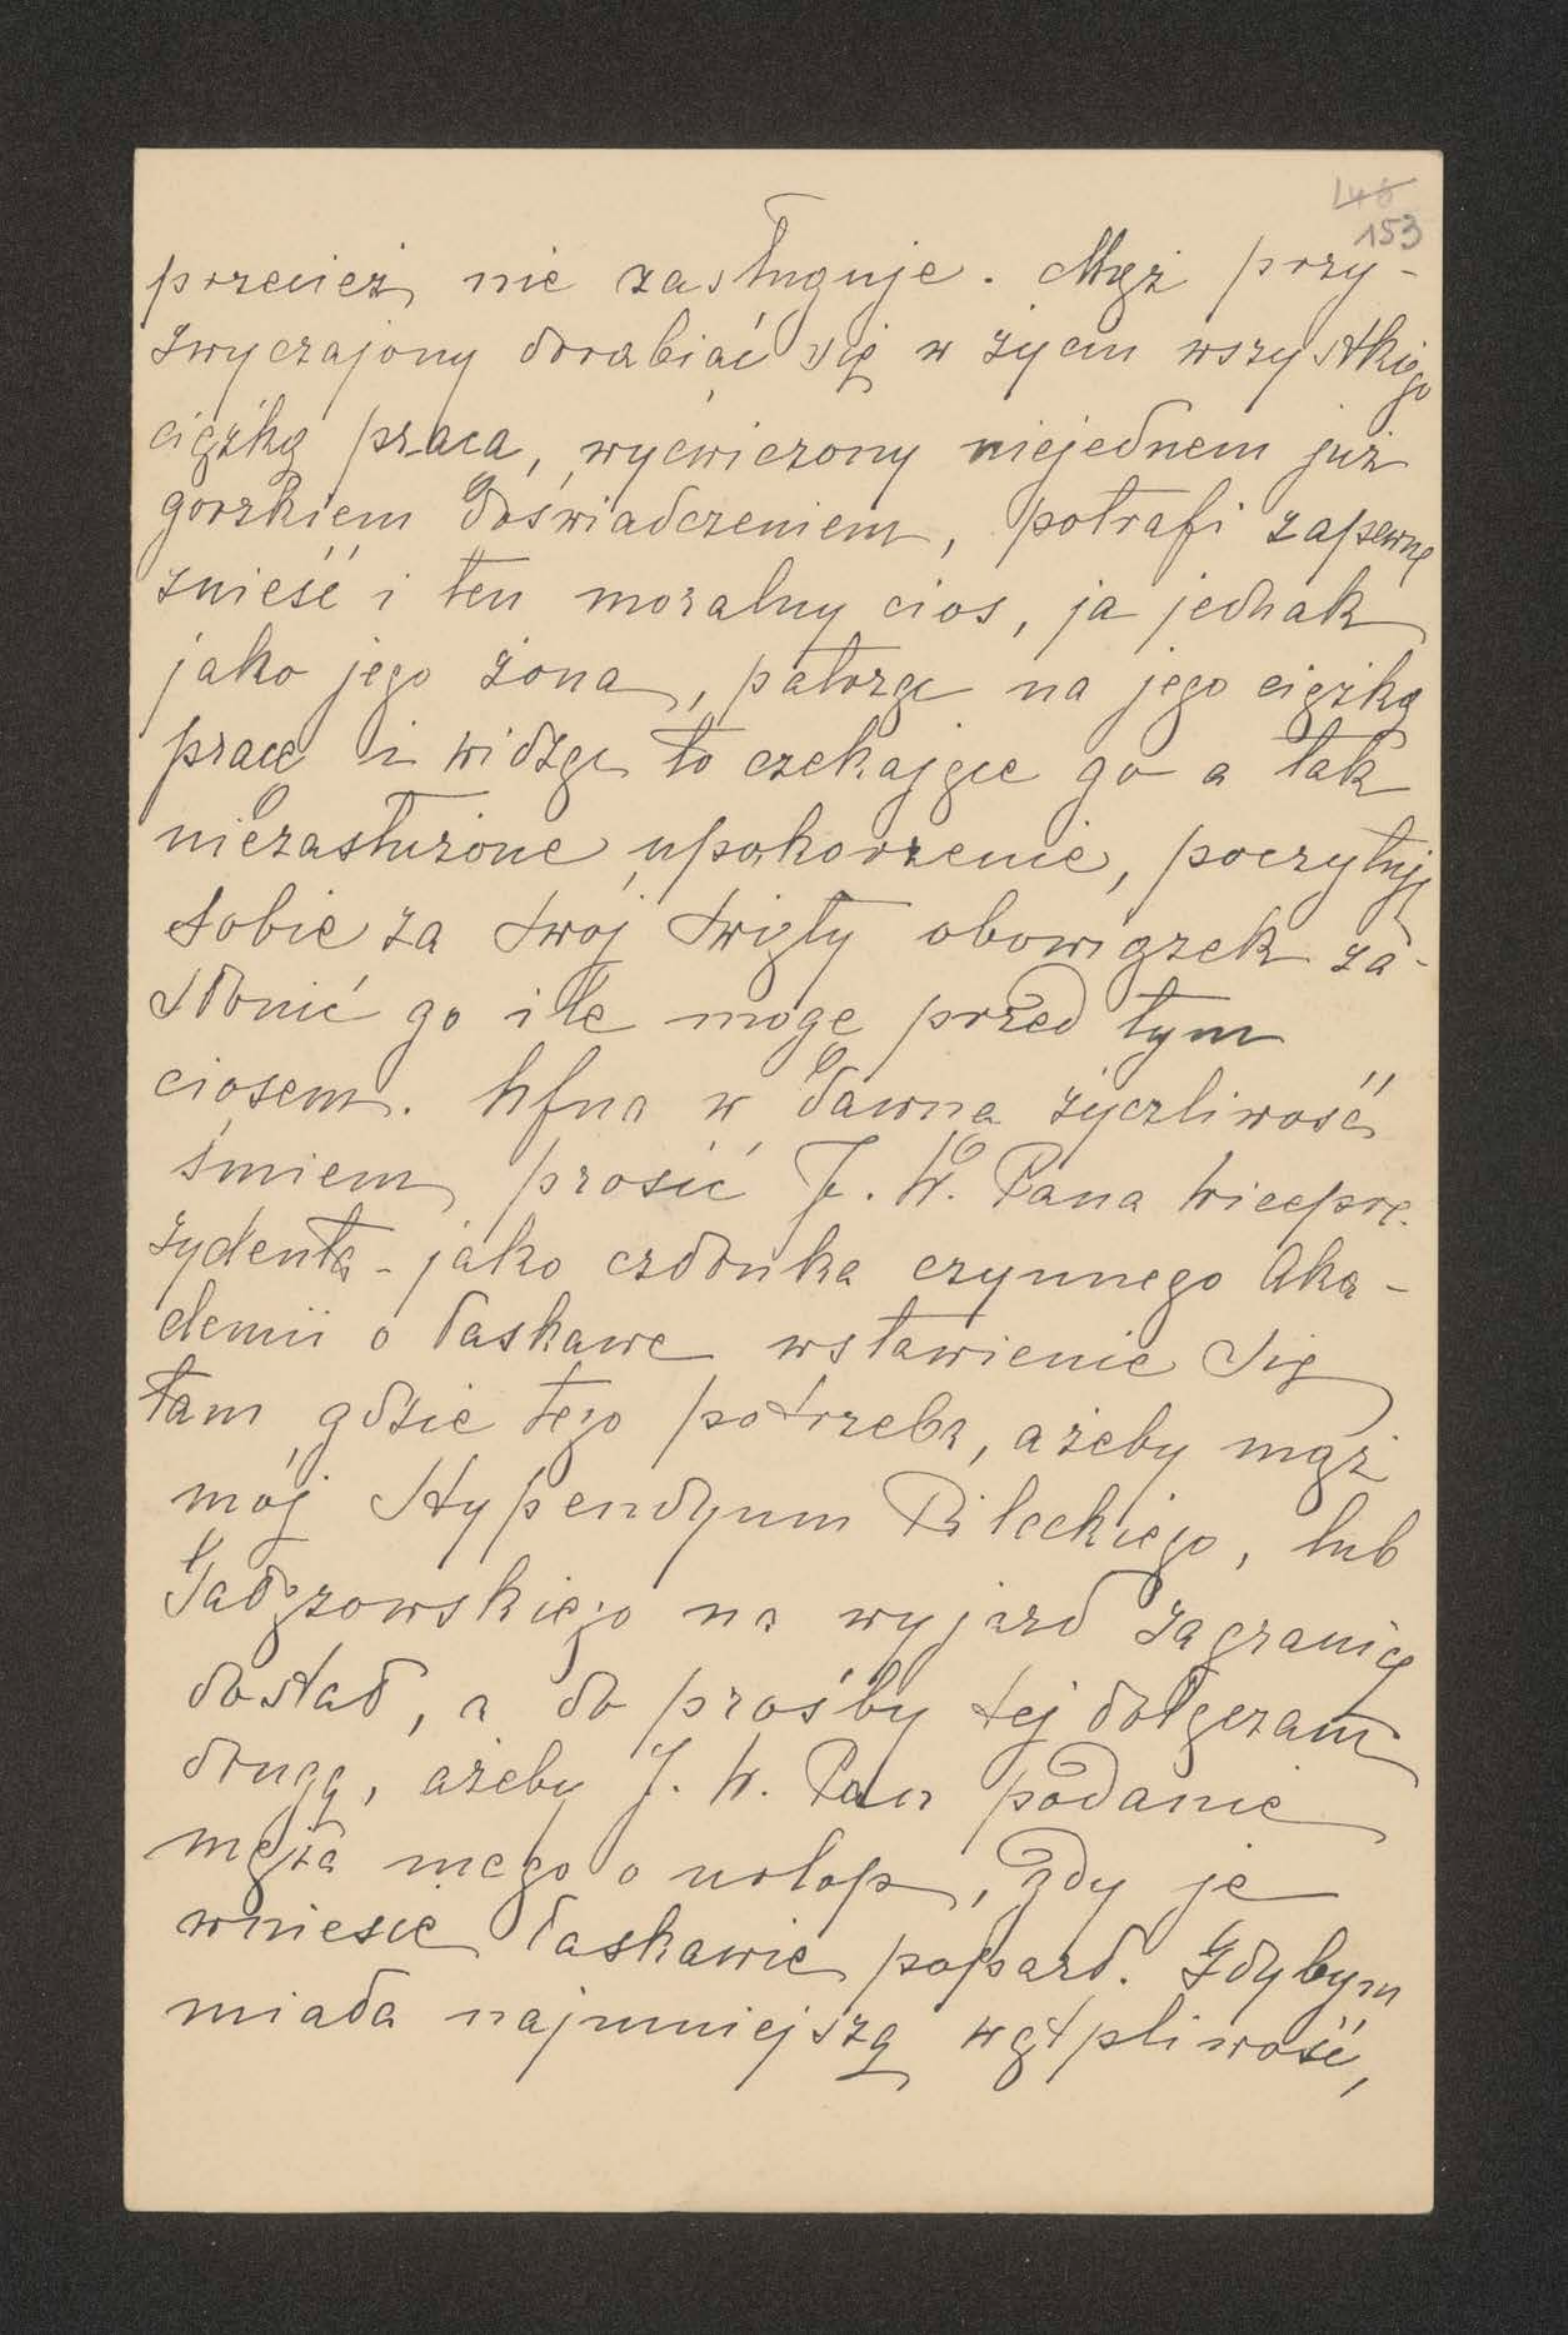 148
153
przecież nie zasługuje. Mąż przy-
zwyczajony dorabiać się w życiu wszystkiego
ciężką praca, wyćwiczony niejednem już
gorzkiem doświadczeniem, potrafi zapewne
znieść i ten moralny cios, ja jednak
jako jego żona, patrząc na jego ciężką
pracę i widząc to czekające go a tak
niezasłużone upokorzenie, poczytuję
sobie za swój święty obowiązek za-
słonić go ile mogę przed tym
ciosem. Ufna w dawną życzliwość
śmiem prosić J. W. Pana Wicepre-
zydenta - jako członka czynnego Aka-
demii o łaskawe wstawienie się
tam gdzie tego potrzeba, ażeby mąż
mój Stypendyum Pileckiego, lub
Gałęzowskiego na wyjazd zagranicę
dostał, a do prośby tej dołączam
drugą, ażeby J. W. Pan podanie
męża mego o urlop, gdy je
wniesie łaskawie poparł. Gdybym
miała najmniejszą wątpliwość,